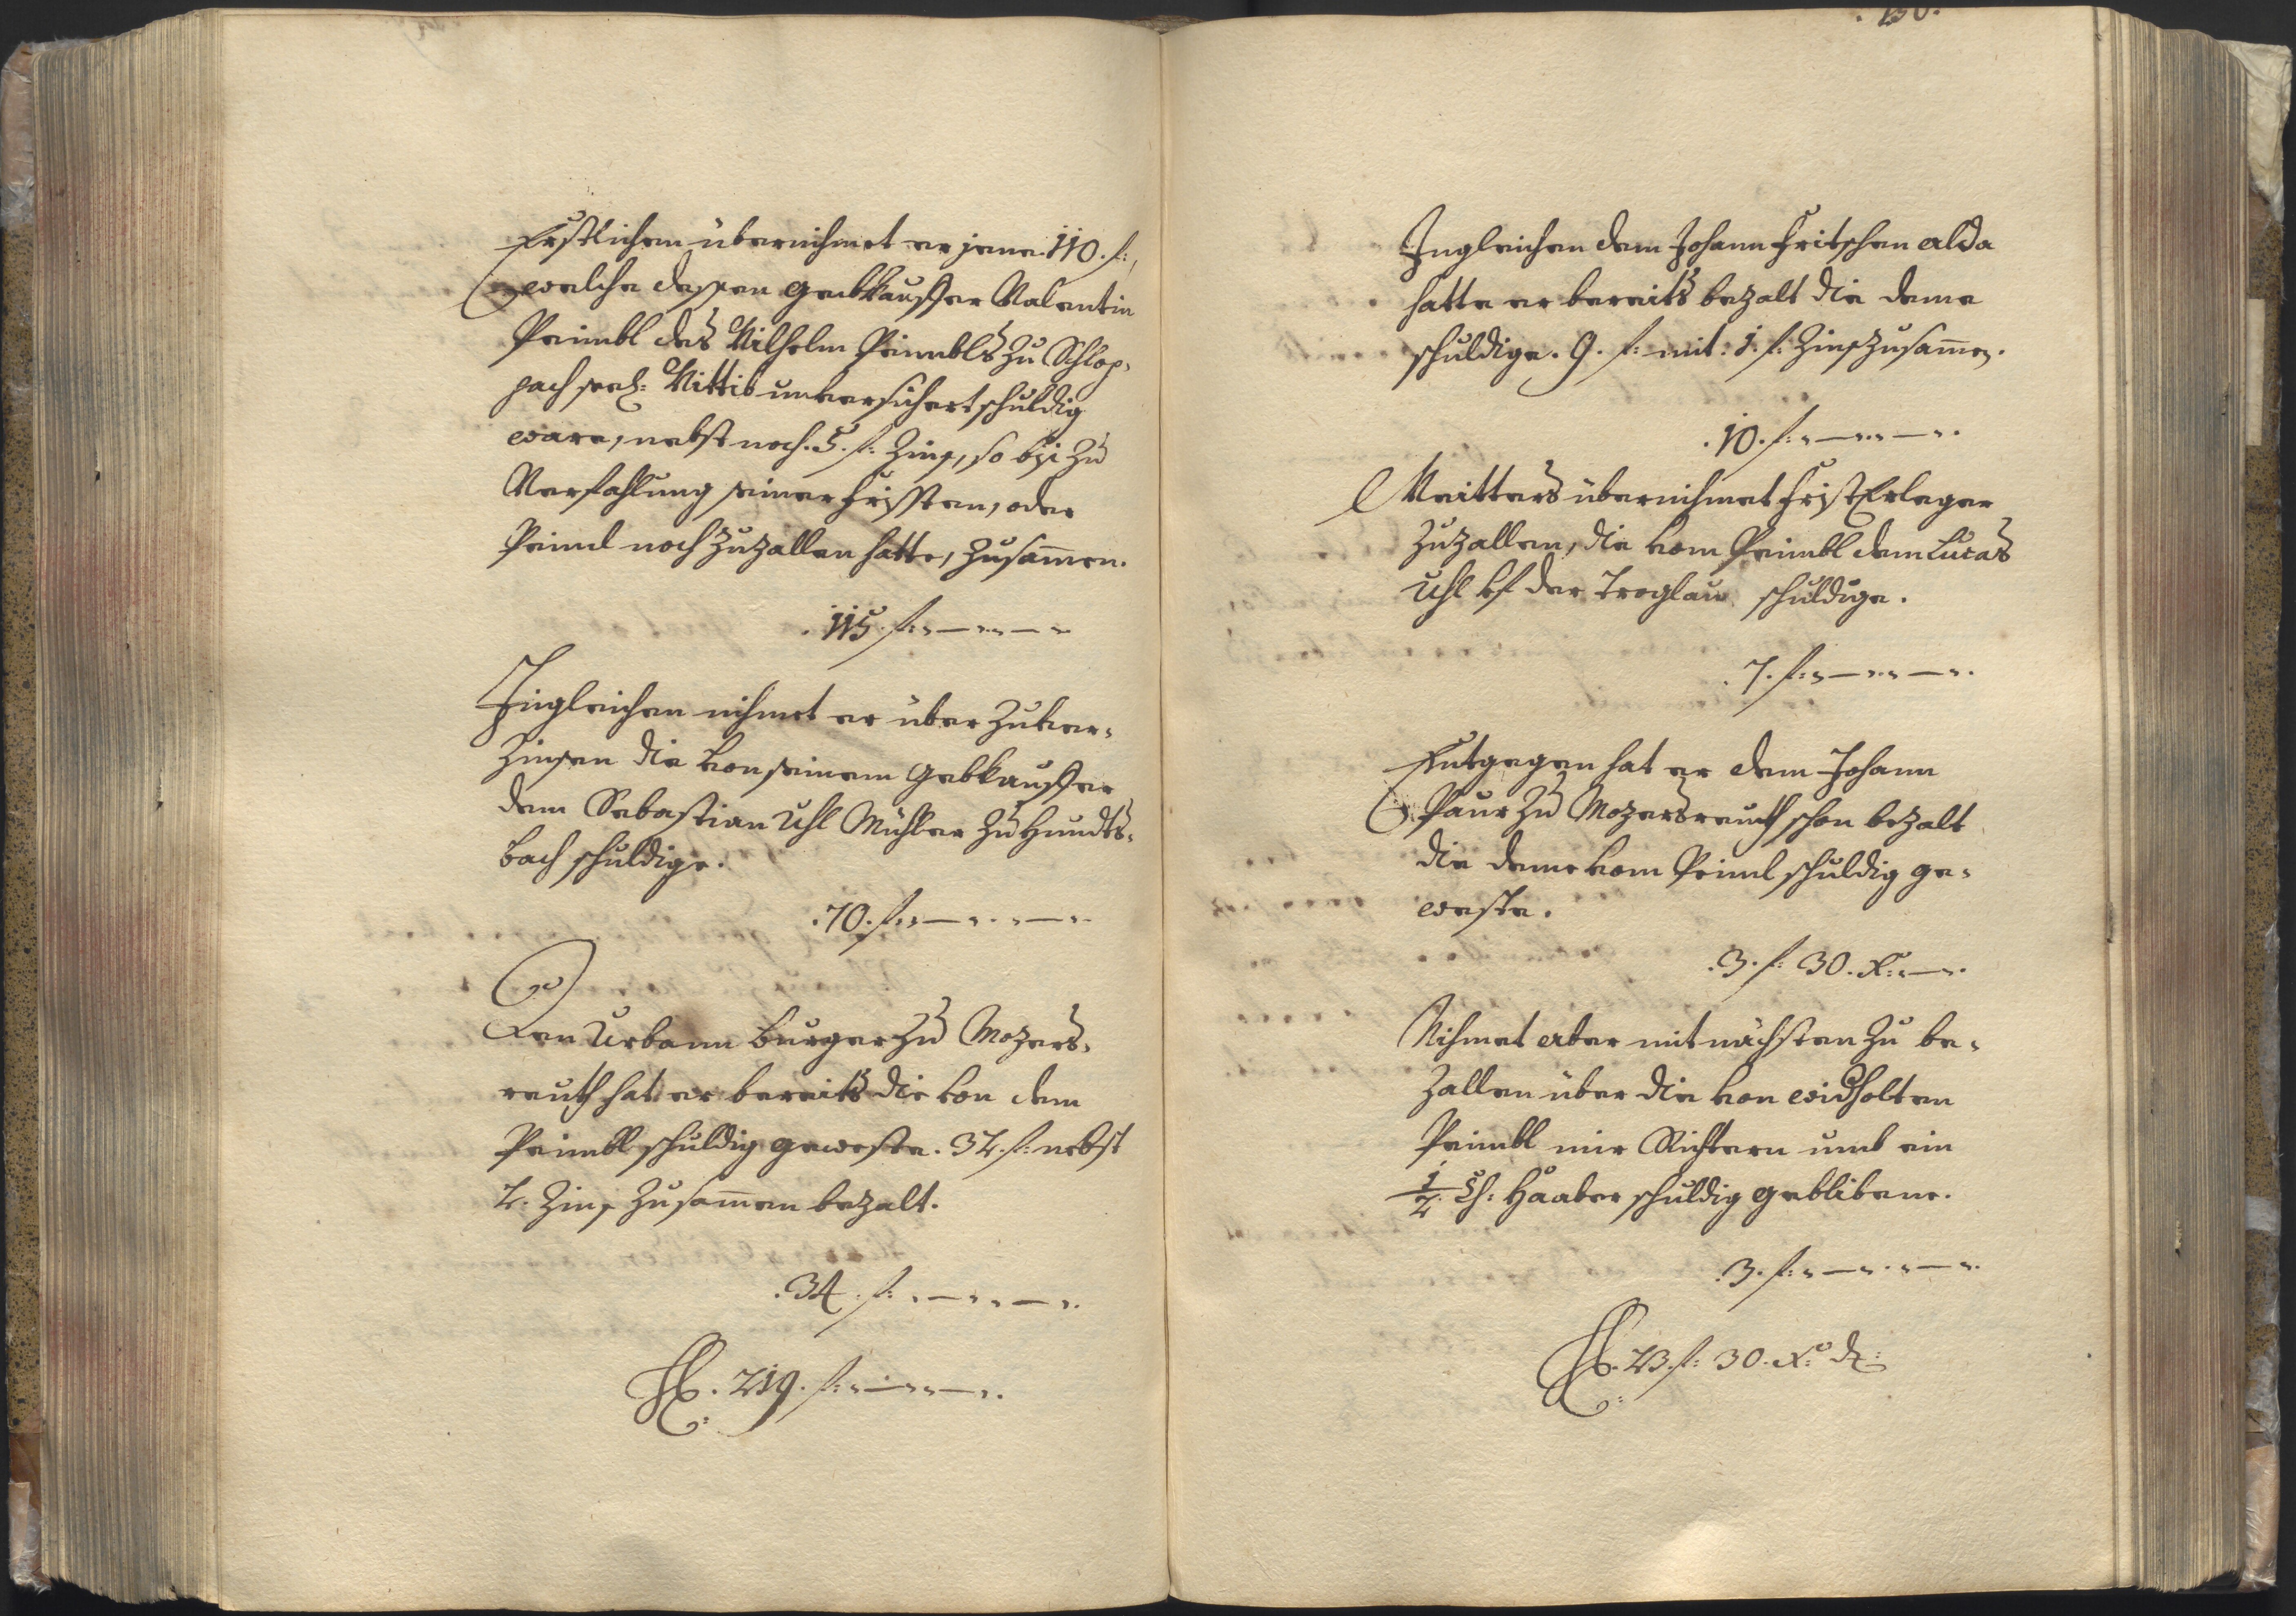 Erstlichen übernihmet er jene .110. f:,
welche dessen gebkauffer Valentin
Peimbl des Wilhelm Peimbls zu Schlop-
pach seel: Wittib unversichert schuldig
ware, nebst noch .5. f: Zins, so biß zu
Verfahlung seiner fristen, oder
Peiml noch zuzallen hatte, zusammen.
.115. f:
Ingleichen nihmet er über zuver-
zinsen die von seinem gebkauffer
dem Sebastian Uhl Mühler zu Hundts-
bach schuldige.
.70. f:
Den Urbann Burger zu Mozers-
reuth hat er bereits die von dem
Peimbl schuldig geweste .32. f: nebst
2. Zins zusammen bezalt.
.34. f:
.219. f:
.130.
Ingleichen dem Johann Fritschen alda
hatte er bereits bezalt die deme
schuldige .9. f: mit .1. f: Zins zusammen.
.10. f:
Weitters übernihmet fristerleger
zuzallen, die vom Peimbl dem Lucas
Uhl vf der Troglau schuldige.
.7. f:
Entgegen hat er dem Johann
Paur zu Mozersreuth schon bezalt
die deme vom Peiml schuldig ge-
weste.
.3. f: 30. x:
Nihmet aber mit nächsten zu be-
zallen über die von widholten
Peimbl mir Richtern umb ein
1/2 Haaber schuldig geblibene.
.3. f:
.23. f: 30. x: